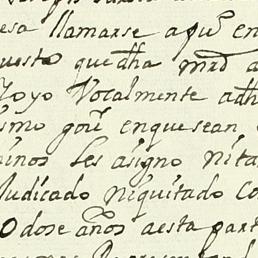 esa llamarse aqui en
uesto que dha mrd a
Yo yo Vocalmente adh
ismo gov enquesean
inos les asigno nita
Iudicado niquitado co
Odose años aesta part